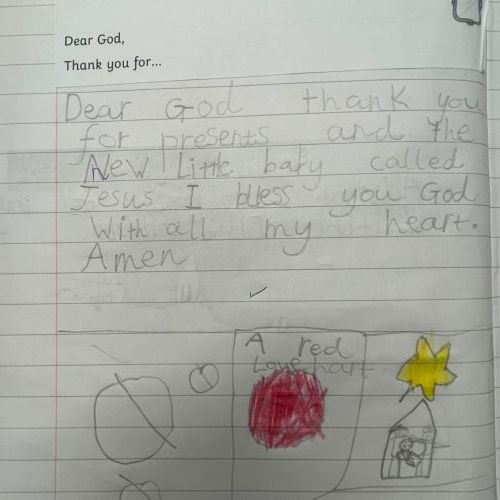 Dear God,
Thank you for...
Dear God thank you
for presents and the
New little baby called
Jesus I bless you God
With all my heart.
Amen
A red
Love hart